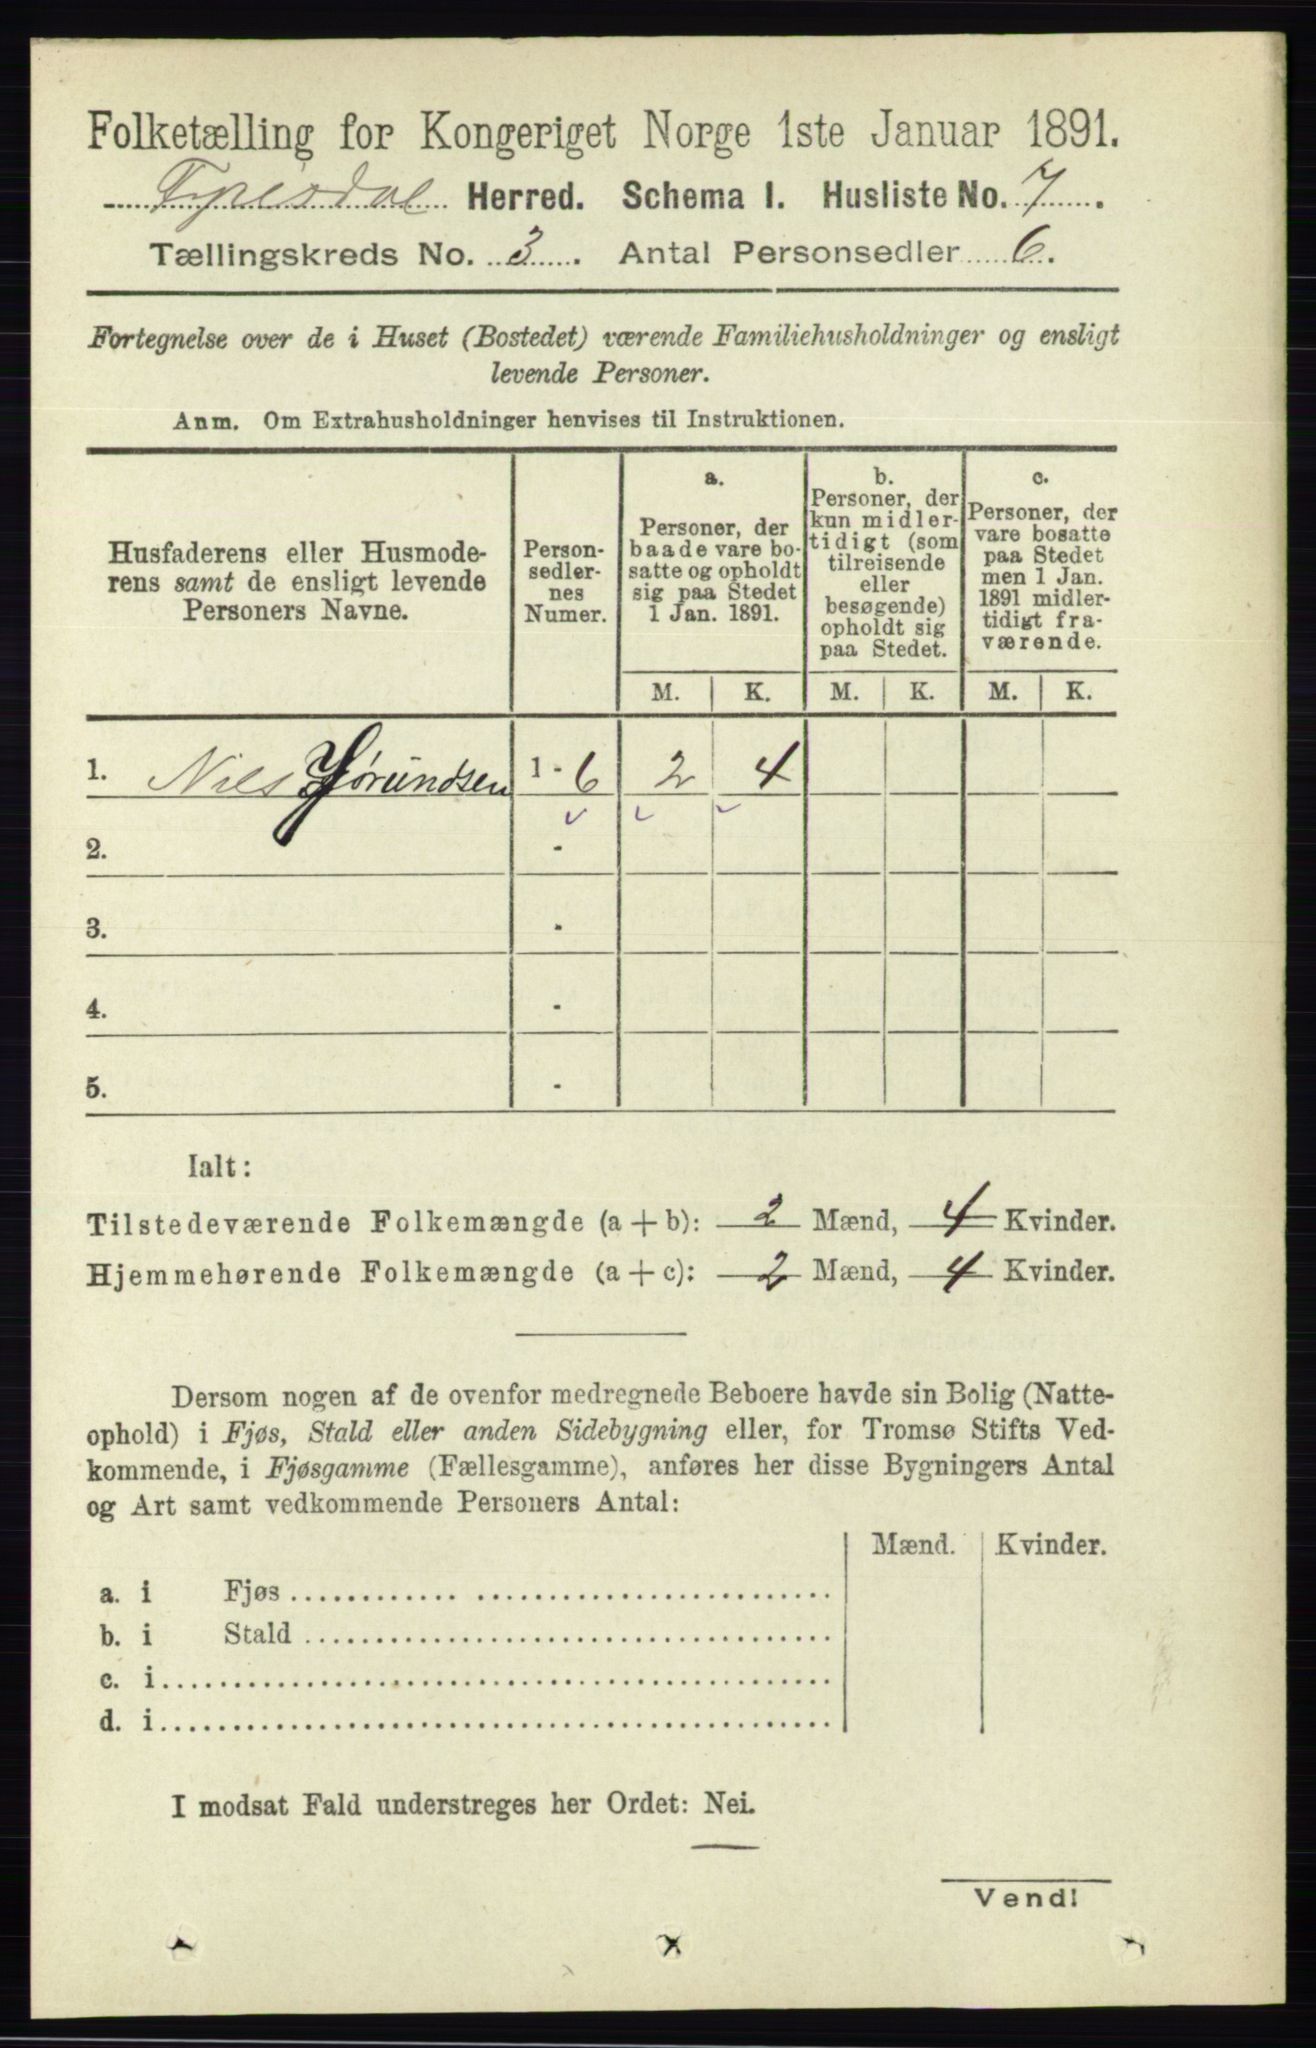 Folketælling for Kongeriget Norge 1ste Januar 1891.
Fyresdal Herred. Schema I. Husliste No. 7.
Tællingskreds No. 3. Antal Personsedler 6.
Fortegnelse over de i Huset (Bostedet) værende Familiehusholdninger og ensligt
levende Personer.
Anm. Om Extrahusholdninger henvises til Instruktionen.
Husfaderens eller Husmode-
rens samt de ensligt levende
Personers Navne.
Person-
sedler-
nes
Numer.
a.
Personer, der
baade vare bo-
satte og opholdt
sig paa Stedet
1 Jan. 1891.
b.
Personer, der
kun midler-
tidigt (som
tilreisende
eller
besøgende)
opholdt sig
paa Stedet.
c.
Personer, der
vare bosatte
paa Stedet
men 1 Jan.
1891 midler-
tidigt fra-
værende.
M. K. M. K. M. K.
1. Nils Jørundsen 1 - 6 2 4
2. -
3. -
4. -
5. -
Ialt:
Tilstedeværende Folkemængde (a + b): 2 Mænd, 4 Kvinder.
Hjemmehørende Folkemængde (a + c): 2 Mænd, 4 Kvinder.
Dersom nogen af de ovenfor medregnede Beboere havde sin Bolig (Natte-
ophold) i Fjøs, Stald eller anden Sidebygning eller, for Tromsø Stifts Ved-
kommende, i Fjøsgamme (Fællesgamme), anføres her disse Bygningers Antal
og Art samt vedkommende Personers Antal:
Mænd. Kvinder.
a. i Fjøs
b. i Stald
c. i
d. i
I modsat Fald understreges her Ordet: Nei.
Vend!